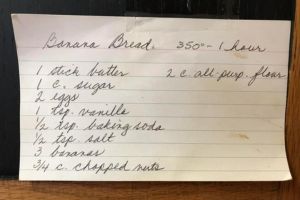 Banana Bread. 350° - 1 hour
1 stick butter 2 c. all purp. flour
1 c. sugar
2 eggs
1 tsp. vanilla
1/2 tsp. baking soda
1/2 tsp. salt
3 bananas
3/4 c. chopped nuts